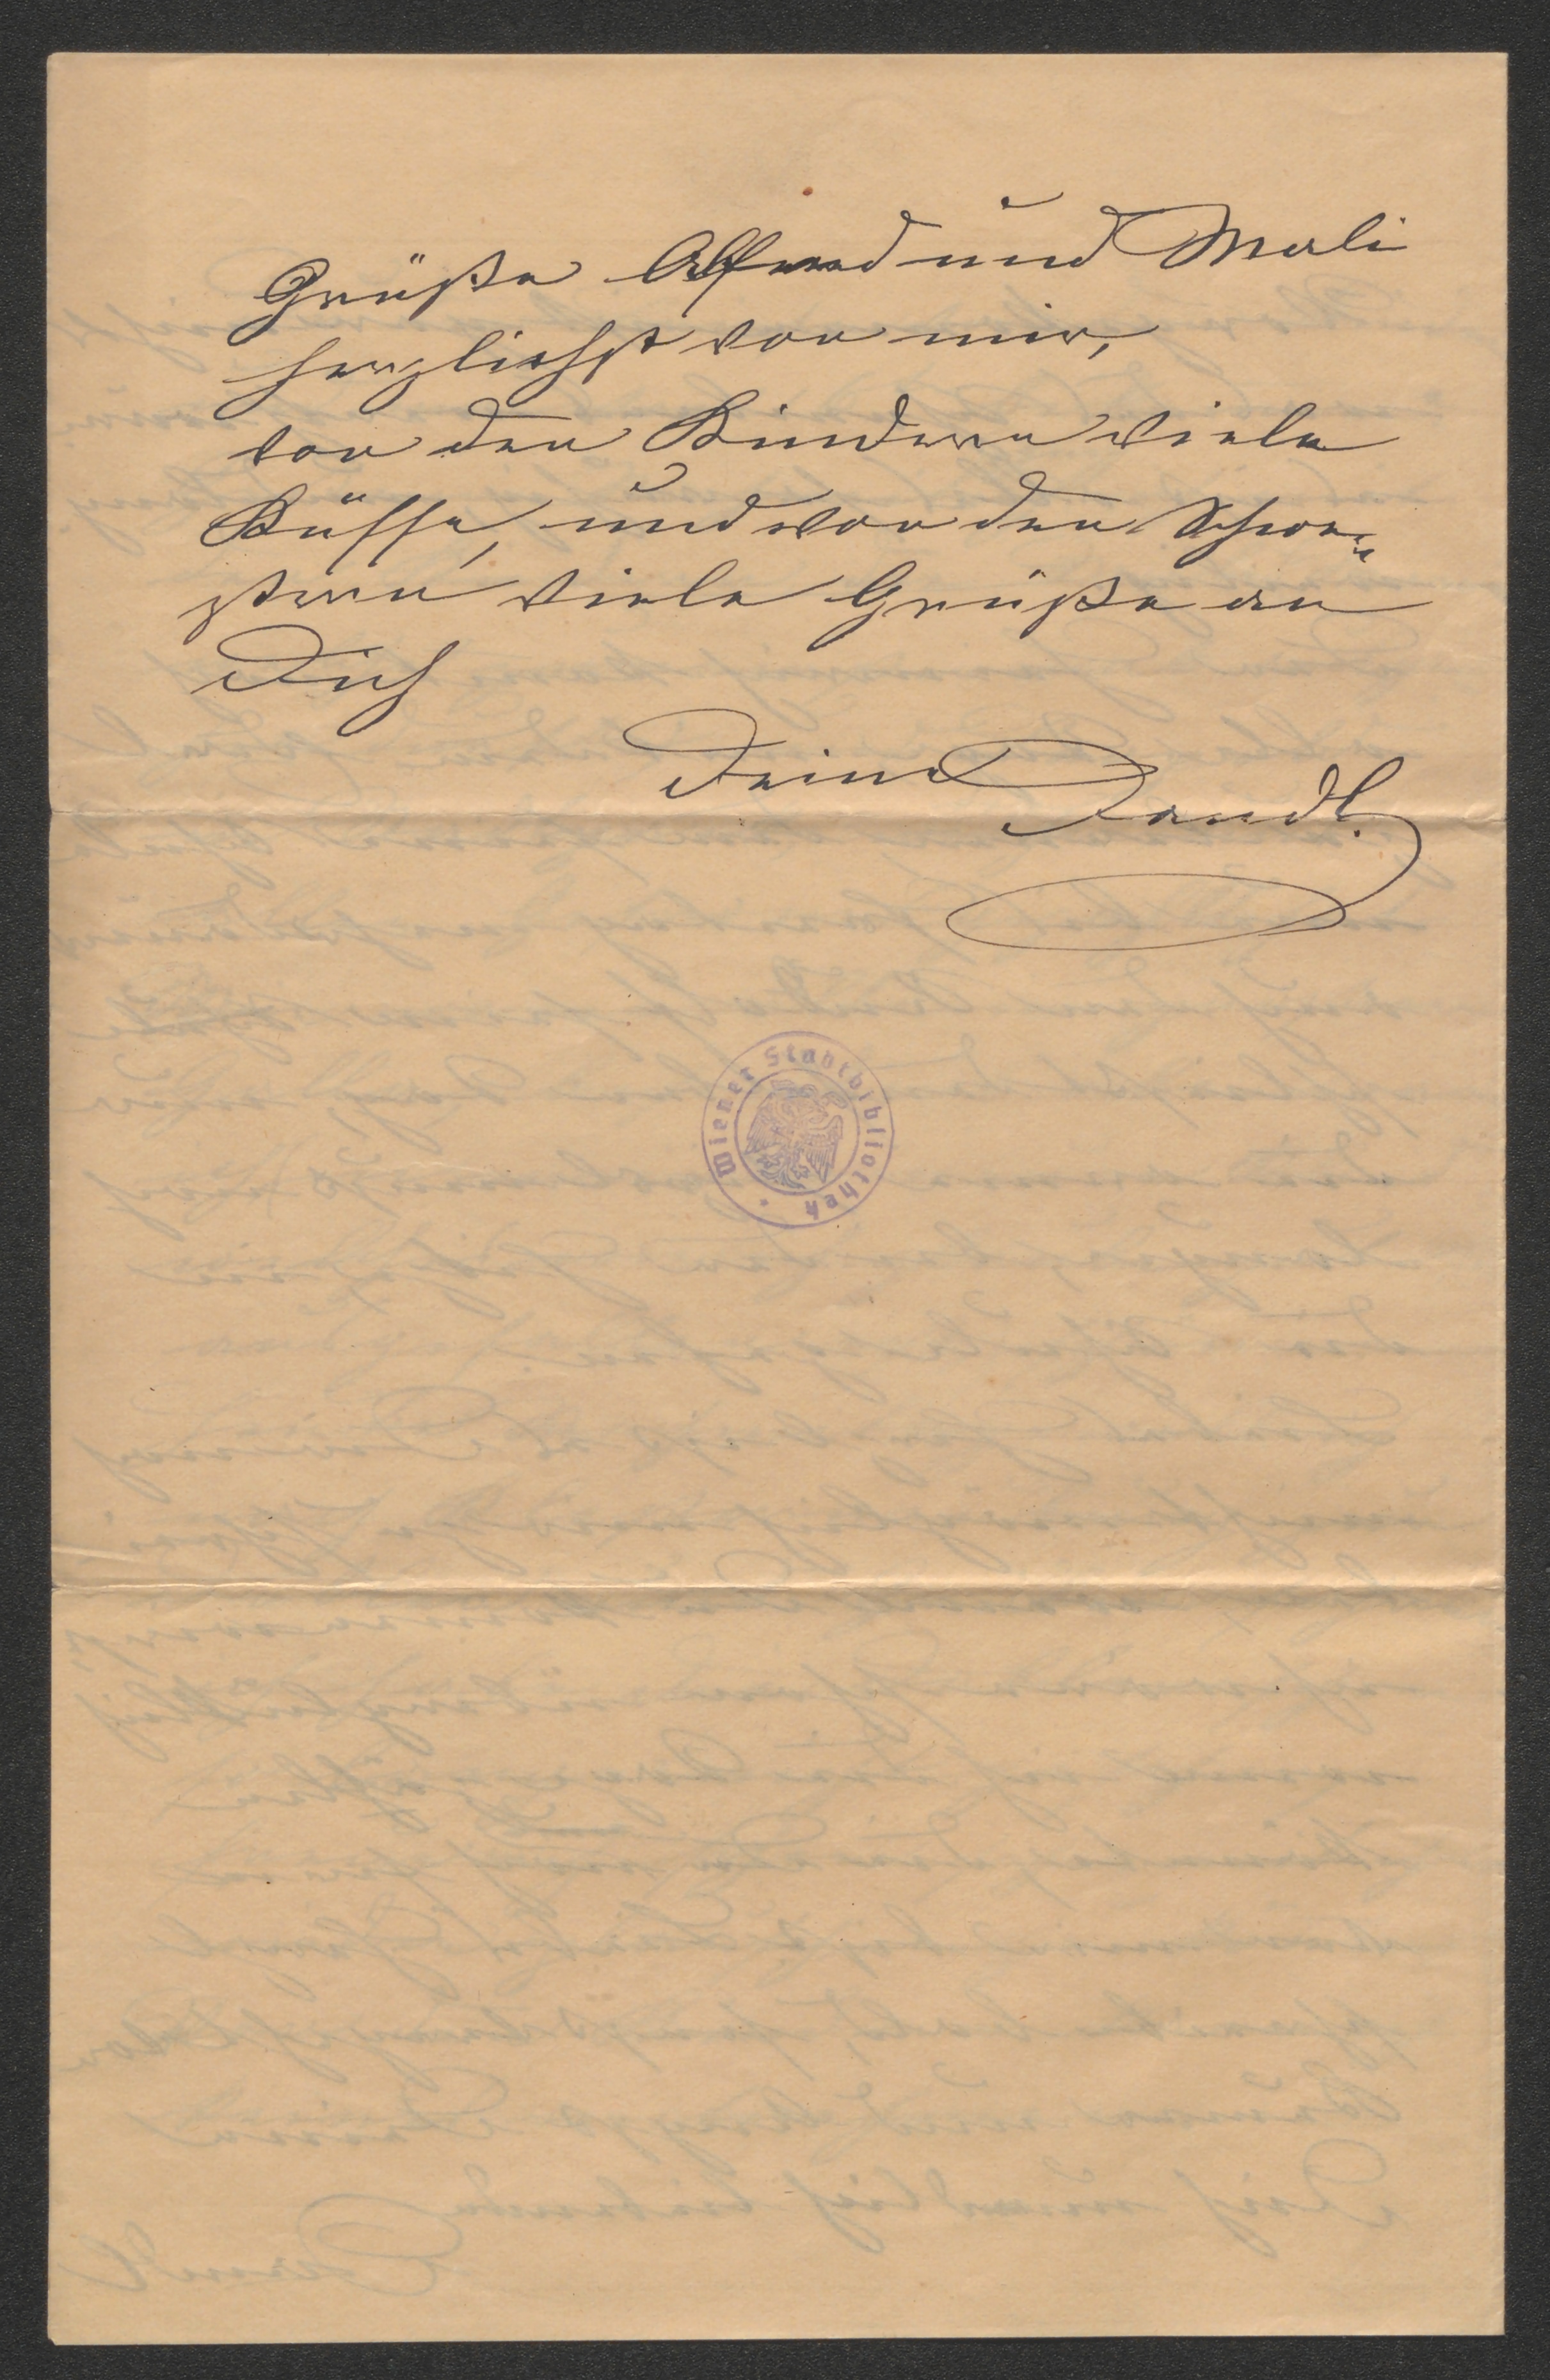 Grüße Alfred und Mali
herzlichst von mir,
von den Kindern viele
Küsse, und von den Schwe-
stern viele Grüße an
Dich
Deine Dandl.
Wiener Stadtbibliothek